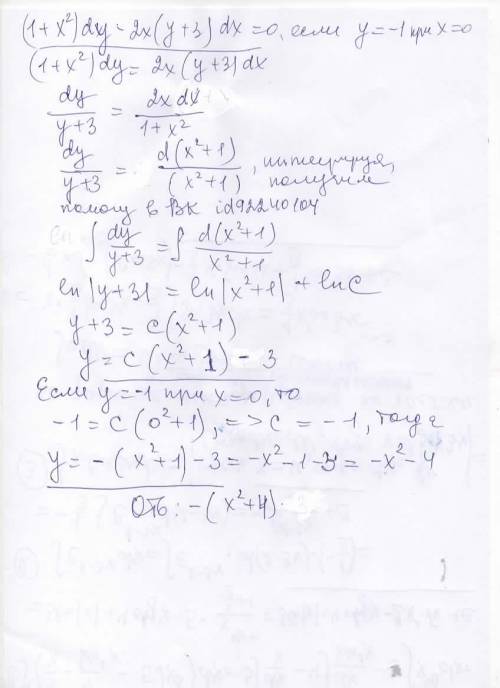 (1+x²)dy - 2x(y+3)dx = 0, если y=-1 при x=0
(1+x²)dy = 2x(y+3)dx
dy/(y+3) = 2x dx/(1+x²)
dy/(y+3) = d(x²+1)/(x²+1), интегрируя, получим
помогу в ВК id92240104
∫ dy/(y+3) = ∫ d(x²+1)/(x²+1)
ln|y+3| = ln|x²+1| + lnC
y+3 = c(x²+1)
y = c(x²+1) - 3
Если y=-1 при x=0, то
-1 = c(0²+1), => c = -1, тогда
y = -(x²+1)-3 = -x²-1-3 = -x²-4
Отв: -(x²+4).